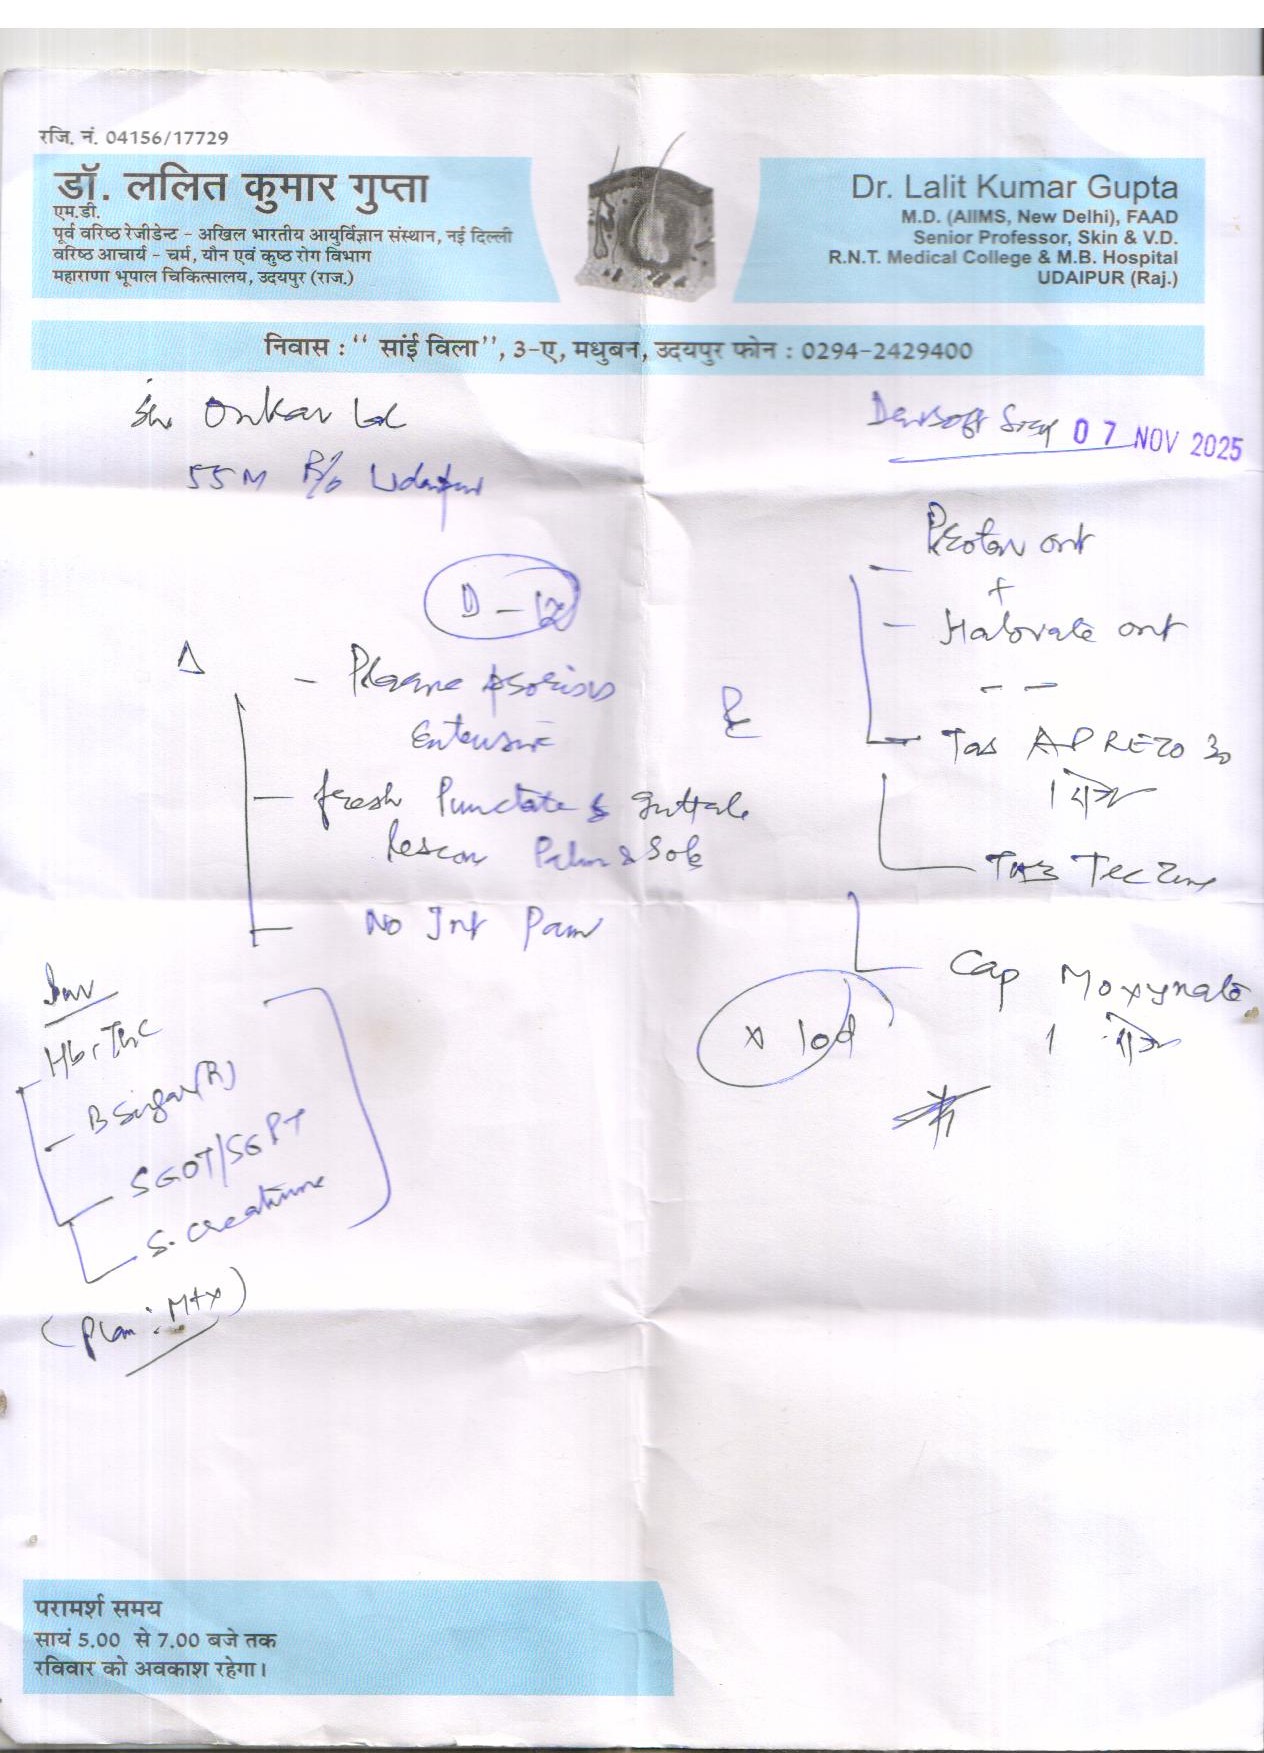 रजि. नं. 04156/17729
डॉ. ललित कुमार गुप्ता
एम.डी.
पूर्व वरिष्ठ रेजीडेन्ट - अखिल भारतीय आयुर्विज्ञान संस्थान, नई दिल्ली
वरिष्ठ आचार्य - चर्म, यौन एवं कुष्ठ रोग विभाग
महाराणा भूपाल चिकित्सालय, उदयपुर (राज.)
Dr. Lalit Kumar Gupta
M.D. (AIIMS, New Delhi), FAAD
Senior Professor, Skin & V.D.
R.N.T. Medical College & M.B. Hospital
UDAIPUR (Raj.)
निवास : '' सांई विला'', 3-ए, मधुबन, उदयपुर फोन : 0294-2429400
Onkar Lal
07 NOV 2025
55 M R/o Udaipur
D - 12
Δ
- Plaque Psoriasis
Extensive
- fresh Punctate & guttate
Lesion Palm & Sole
- No Jnt Pain
Inv
Hb, TLC
- B Sugar (R)
- SGOT/SGPT
- S. Creatinine
(Plan : Mtx)
Rx
ont
+
- Halovate ont
- -
- Tab APREZO 30
1 रोज
- Tab Teczine
Cap Moxynate
1 रोज
x 10d
परामर्श समय
सायं 5.00 से 7.00 बजे तक
रविवार को अवकाश रहेगा।